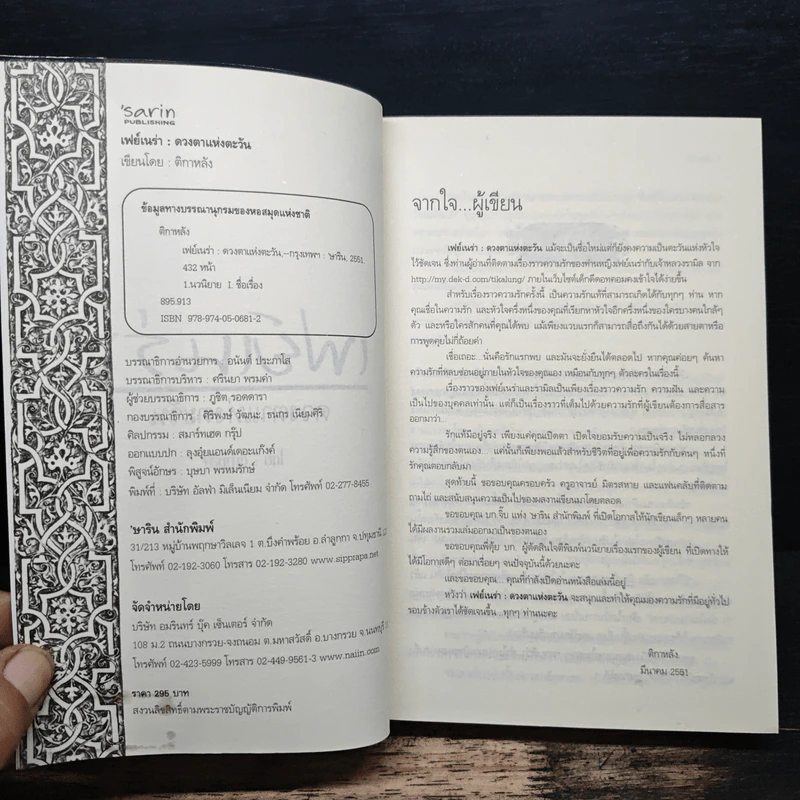 'sarin
PUBLISHING
เฟย์เนร่า : ดวงตาแห่งตะวัน
เขียนโดย : ติกาหลัง
ข้อมูลทางบรรณานุกรมของหอสมุดแห่งชาติ
ติกาหลัง
เฟย์เนร่า : ดวงตาแห่งตะวัน,--กรุงเทพฯ : 'ษาริน, 2551.
432 หน้า
1.นวนิยาย I. ชื่อเรื่อง
895.913
ISBN 978-974-05-0681-2
บรรณาธิการอำนวยการ : อนันต์ ประภาโส
บรรณาธิการบริหาร : ศรินยา พรมคำ
ผู้ช่วยบรรณาธิการ : ภูชิต รอดดารา
กองบรรณาธิการ : ศิริพงษ์ วัฒนะ, ธนกร เนียมศิริ
ศิลปกรรม : สมาร์ทเฮด กรุ๊ป
ออกแบบปก : ลุงอุ้ยแอนด์เดอะแก๊งค์
พิสูจน์อักษร : บุษบา พรหมรักษ์
พิมพ์ที่ : บริษัท อัลฟ่า มิเล็นเนียม จำกัด โทรศัพท์ 02-277-8455
'ษาริน สำนักพิมพ์
31/213 หมู่บ้านพฤกษาวิลเลจ 1 ต.บึงคำพร้อย อ.ลำลูกกา จ.ปทุมธานี
โทรศัพท์ 02-192-3060 โทรสาร 02-192-3280 www.sipprapa.net
จัดจำหน่ายโดย
บริษัท อมรินทร์ บุ๊ค เซ็นเตอร์ จำกัด
108 ม.2 ถนนบางกรวย-จงถนอม ต.มหาสวัสดิ์ อ.บางกรวย จ.นนทบุรี
โทรศัพท์ 02-423-5999 โทรสาร 02-449-9561-3 www.naiin.com
ราคา 295 บาท
สงวนลิขสิทธิ์ตามพระราชบัญญัติการพิมพ์
จากใจ...ผู้เขียน
เฟย์เนร่า : ดวงตาแห่งตะวัน แม้จะเป็นชื่อใหม่แต่ก็ยังคงความเป็นตะวันแห่งหัวใจ
ไว้ชัดเจน ซึ่งท่านผู้อ่านที่ติดตามเรื่องราวความรักของท่านหญิงเฟย์เนร่ากับเจ้าหลวงรามิล จาก
http://my.dek-d.com/tikalung/ ภายในเว็บไซต์เด็กดีดอทคอมคงเข้าใจได้ง่ายขึ้น
สำหรับเรื่องราวความรักครั้งนี้ เป็นความรักแท้ที่สามารถเกิดได้กับทุกๆ ท่าน หาก
คุณเชื่อในความรัก และหัวใจครึ่งหนึ่งของคุณที่เรียกหาหัวใจอีกครึ่งหนึ่งของใครบางคนใกล้ๆ
ตัว และหรือใครสักคนที่คุณได้พบ แม้เพียงแวบแรกก็สามารถสื่อถึงกันได้ด้วยสายตาหรือ
การพูดคุยไม่กี่ถ้อยคำ
เชื่อเถอะ...นั่นคือรักแรกพบ และมันจะยั่งยืนได้ตลอดไป หากคุณค่อยๆ ค้นหา
ความรักที่หลบซ่อนอยู่ภายในหัวใจของคุณเอง เหมือนกับทุกๆ ตัวละครในเรื่องนี้
เรื่องราวของเฟย์เนร่าและรามิลเป็นเพียงเรื่องราวความรัก ความฝัน และความ
เป็นไปของบุคคลเท่านั้น แต่ก็เป็นเรื่องราวที่เต็มไปด้วยความรักที่ผู้เขียนต้องการสื่อสาร
ออกมาว่า...
รักแท้มีอยู่จริง เพียงแค่คุณเปิดตา เปิดใจยอมรับความเป็นจริง ไม่หลอกลวง
ความรู้สึกของตนเอง... แค่นั้นก็เพียงพอแล้วสำหรับชีวิตที่อยู่เพื่อความรักกับคนๆ หนึ่งที่
รักคุณตอบกลับมา
สุดท้ายนี้ ขอขอบคุณครอบครัว ครูอาจารย์ มิตรสหาย และแฟนคลับที่ติดตาม
ถามไถ่ และสนับสนุนความเป็นไปของผลงานเขียนมาโดยตลอด
ขอขอบคุณ บก.จิ๊บ แห่ง 'ษาริน สำนักพิมพ์ ที่เปิดโอกาสให้นักเขียนเล็กๆ หลายคน
ได้มีผลงานรวมเล่มออกมาเป็นของตนเอง
ขอขอบคุณพี่ตุ้ย บก. ผู้ตัดสินใจตีพิมพ์นวนิยายเรื่องแรกของผู้เขียน ที่เปิดทางให้
ได้มีโอกาสดีๆ ต่อมาเรื่อยๆ จนปัจจุบันนี้ด้วยนะคะ
และขอขอบคุณ...คุณที่กำลังเปิดอ่านหนังสือเล่มนี้อยู่
หวังว่า เฟย์เนร่า : ดวงตาแห่งตะวัน จะสนุกและทำให้คุณมองความรักที่มีอยู่ทั่วไป
รอบข้างตัวเราได้ชัดเจนขึ้น ...ทุกๆ ท่านนะคะ
ติกาหลัง.
มีนาคม 2551